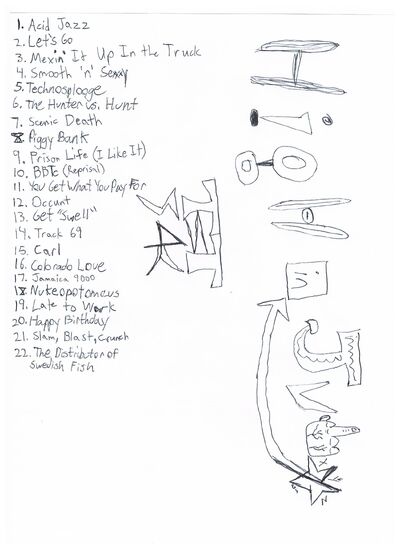 1. Acid Jazz
2. Let's Go
3. Mexin' It Up In the Truck
4. Smooth 'n' Sexxy
5. Technosplooge
6. The Hunter vs. Hunt
7. Scenic Death
8. Piggy Bank
9. Prison Life (I Like It)
10. BBTC (Reprisal)
11. You Get What You Pay For
12. Occunt
13. Get "Swell"
14. Track 69
15. Carl
16. Colorado Love
17. Jamaica 9000
18. Nukeopotomous
19. Late to Work
20. Happy Birthday
21. Slam, Blast, Crunch
22. The Distributor of
Swedish Fish
High
in